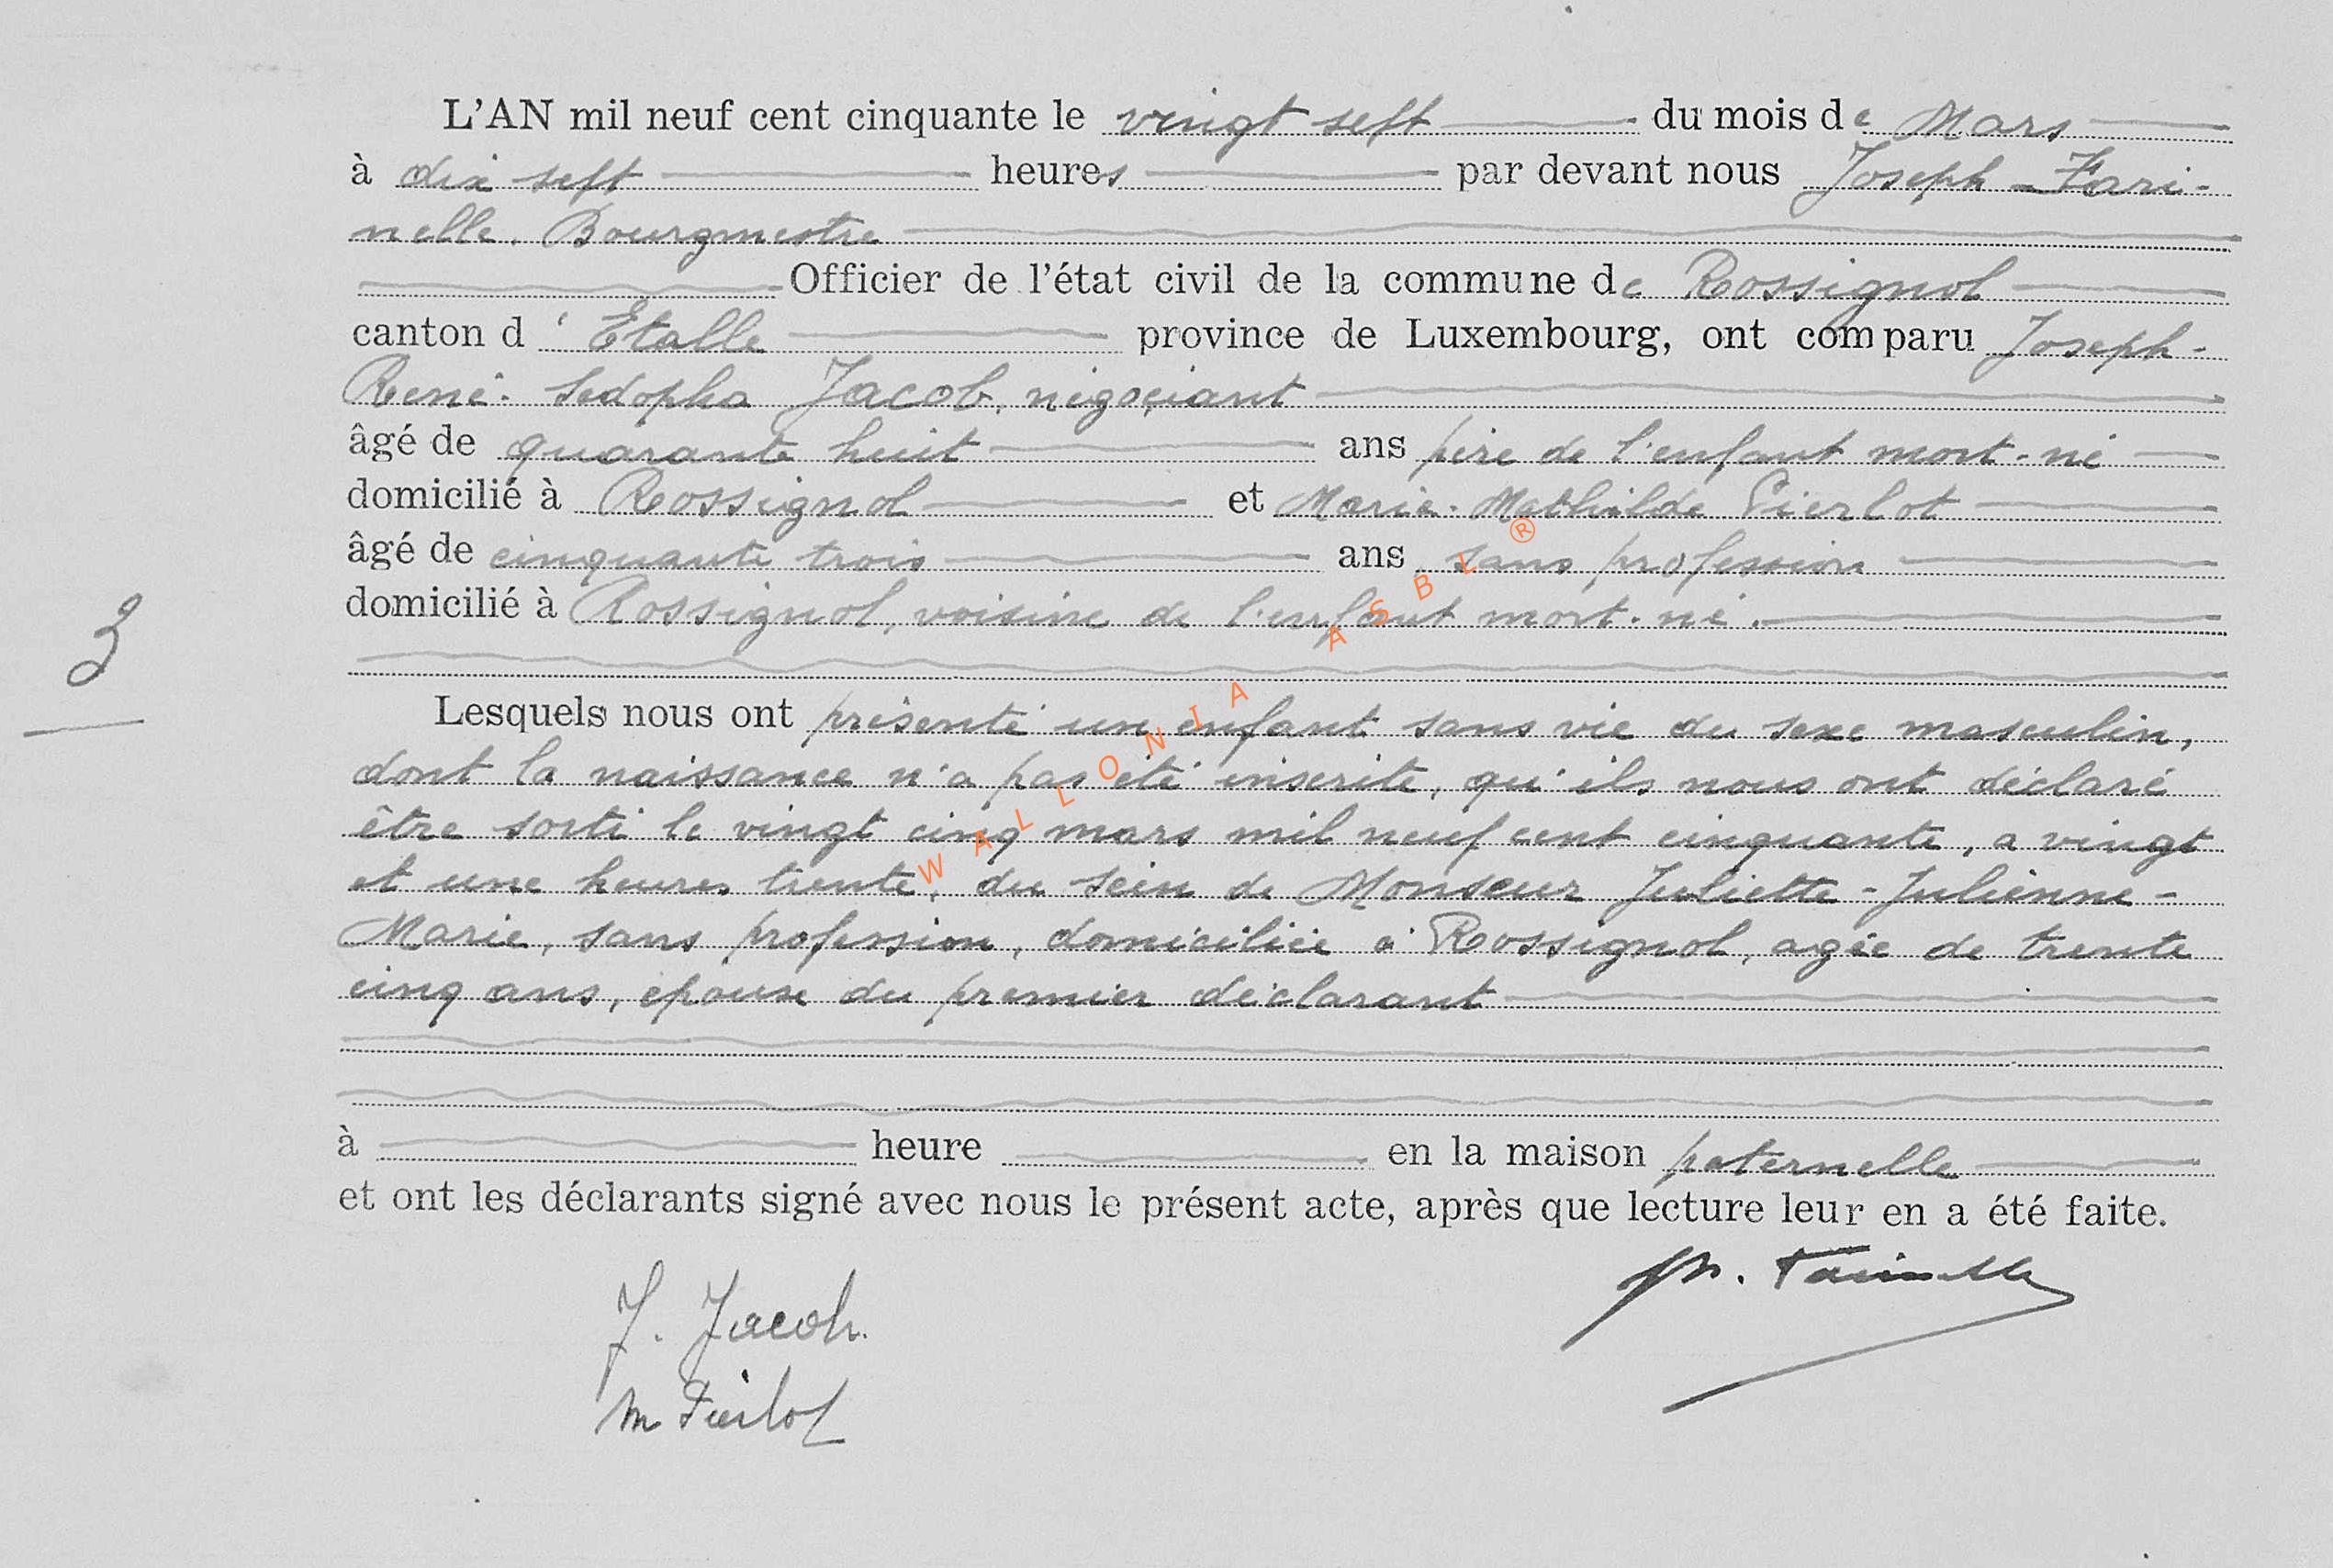 L'AN mil neuf cent cinquante le vingt sept du mois de Mars
à dix sept heures par devant nous Joseph Fari-
nelle. Bourgmestre
Officier de l'état civil de la commune de Rossignol
canton d'Etalle province de Luxembourg, ont comparu Joseph-
René- Jacob, négoçiant
âgé de quarante huit ans père de l'enfant mort-né
domicilié à Rossignol et Marie-Mathilde Pierlot
âgé de cinquante trois ans sans profession
domicilié à Rossignol, voisine de l'enfant mort-né.
3
Lesquels nous ont présenté un enfant sans vie du sexe masculin,
dont la naissance n'a pas été inscrite, qu'ils nous ont déclaré
être sorti le vingt cinq mars mil neuf cent cinquante, a vingt
et une heures trente, du sein de Monseur Juliette-Julienne-
Marie, sans profession, domiciliée à Rossignol, agée de trente
cinq ans, épouse du premier déclarant
à heure en la maison paternelle
et ont les déclarants signé avec nous le présent acte, après que lecture leur en a été faite.
J. Jacob.
M Pierlot
WALLONIA ASBL ®